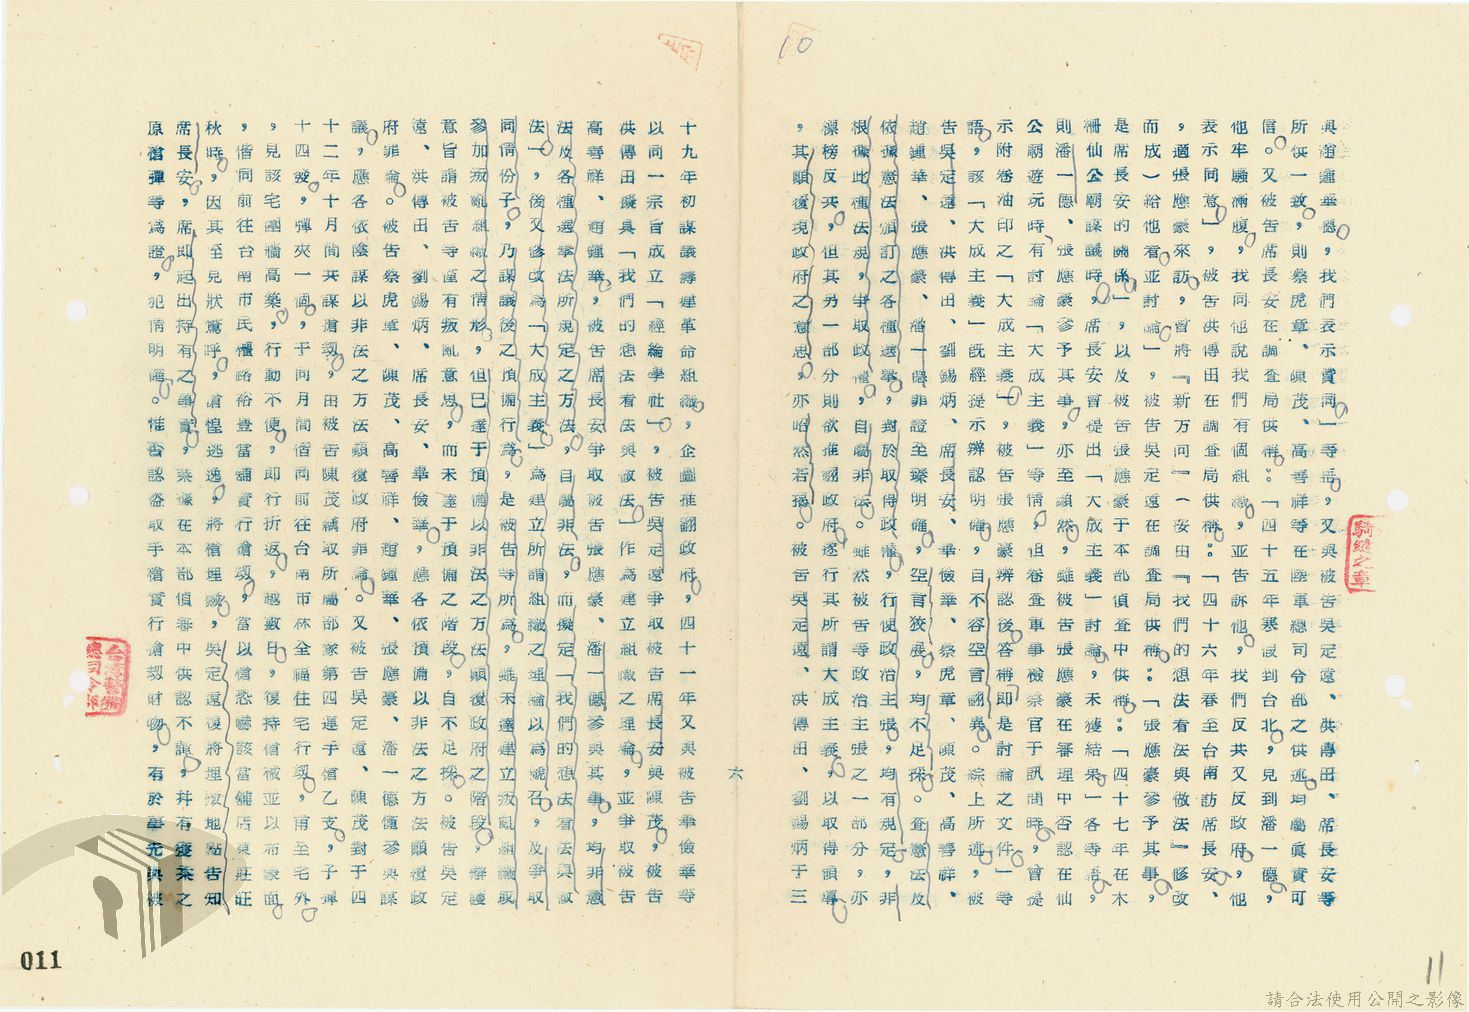 10
與趙鍾華晤，我們表示贊同」等語，又與被告吳定遠、洪傳田、席長安等
所供一致，則蔡虎章、陳茂、高善祥等在陸軍總司令部之供述均屬真實可
信。又被告席長安在調查局供稱：「四十五年寒假到台北，見到潘一德，
他牢騷滿腹，我同他說我們有個組織，並告訴他，我們反共又反政府，他
表示同意」，被告洪傳田在調查局供稱：「四十六年春至台南訪席長安、
，適張應豪來訪，曾將『新方向』（安田『我們的想法看法與做法』修改
而成）給他看並討論」，被告吳定遠在調查局供稱：「張應豪參予其事，
是席長安的關係」，以及被告張應豪于本部偵查中供稱：「四十七年在木
柵仙公廟謀議時，席長安曾提出「大成主義」討論，未獲結果」各等語，
則潘一德、張應豪參予其事，亦至顯然，雖被告張應豪在審理中否認在仙
公廟遊玩時有討論「大成主義」等情，但卷查軍事檢察官于訊問時，曾提
示附卷油印之「大成主義」，被告張應豪辨認後答稱即是討論之文件」等
語，該「大成主義」既經提示辨認明確，自不容空言翻異。綜上所述，被
告吳定遠、洪傳田、劉錫炳、席長安、畢儉華、蔡虎章、陳茂、高善祥、
趙鍾華、張應豪、潘一德罪證至臻明確，空言狡展，均不足採。查憲法及
依據憲法頒訂之各種選舉，對於取得政權，行使政治主張，均有規定，非
根據此種法規，爭取政權，自屬非法。雖然被告等政治主張之一部分，亦
標榜反共，但其另一部分則欲推翻政府逐行其所謂大成主義，以取得領導
，其顛覆現政府之意思，亦昭然若揭。被告吳定遠、洪傳田、劉錫炳于三
六
十九年初謀議籌建革命組織，企圖推翻政府，四十一年又與被告畢儉華等
以同一宗旨成立「經綸學社」，被告吳定遠爭取被告席長安與陳茂，被告
洪傳田擬具「我們的想法看法與做法」作為建立組織之理論，並爭取被告
高善祥、趙鍾華，被告席長安爭取被告張應豪、潘一德參與其事，均非憲
法及各種選舉法所規定之方法，自屬非法，而擬定「我們的想法看法與做
法」，後又修改為「大成主義」為建立所謂組織之理論以為號召，及爭取
同情份子，乃謀議後之預備行為，是被告等所為，雖未達建立叛亂組織或
參加叛亂組織之情形，但已達于預備以非法之方法顛覆政府之階段，辯護
意旨謂被告等僅有叛亂意思，而未達于預備之階段，自不足採。被告吳定
遠、洪傳田、劉錫炳、席長安、畢儉華，應各依預備以非法之方法顛覆政
府罪論。被告蔡虎章、陳茂、高善祥、趙鍾華、張應豪、潘一德僅參與謀
議，應各依陰謀以非法之方法顛覆政府罪論。又被告吳定遠、陳茂對于四
十二年十月間共謀搶劫，由被告陳茂竊取所屬部隊第四連手槍乙支，子彈
十四發，彈夾一個，于同月間偕同前往台南市林全福住宅行劫，甫至宅外
，見該宅圍牆高築，行動不便，即行折返，越數日，復持槍械並以布蒙面
，偕同前往台南市民權路裕豐當舖實行搶劫，當以槍恐嚇該當舖店東莊旺
秋時，因其至見狀驚呼，倉惶逃逸，將槍埋藏，吳定遠後將埋藏地點告知
席長安，席即起出持有之事實，業據在本部偵審中供認不諱，并有褒榮之
原槍彈等為證，犯情明確。惟否認盜取手槍實行搶劫財物，有於事先與被
騎縫之章
台灣警備總司令部
011
11
請合法使用公開之影像